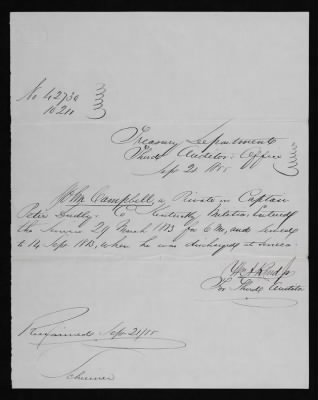 No 42730
Treasury Department
Third Auditor's Office
Sept 21 1855
Wm Campbell, a Private in Captain
Peter Dudley's Co Kentucky Militia, entered
the Service 29 March 1813 for 6 m, and served
to 14 Sept 1813, when he was discharged at Seneca
For Third Auditor
Reexamined Sept 21/55